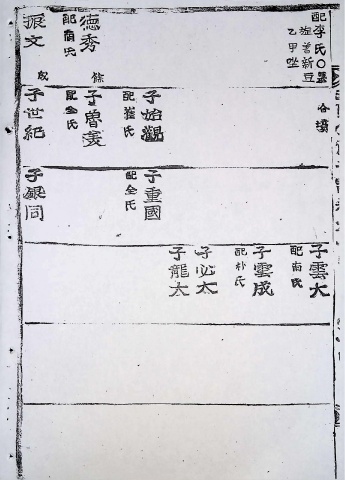 配李氏○墓
乙甲坐
德秀
配南氏
振文
子始觀
配崔氏
子曾羙
配金氏
子世紀
子重國
配金氏
子銀同
子雲大
配南氏
子雲成
配朴氏
子必太
子龍太